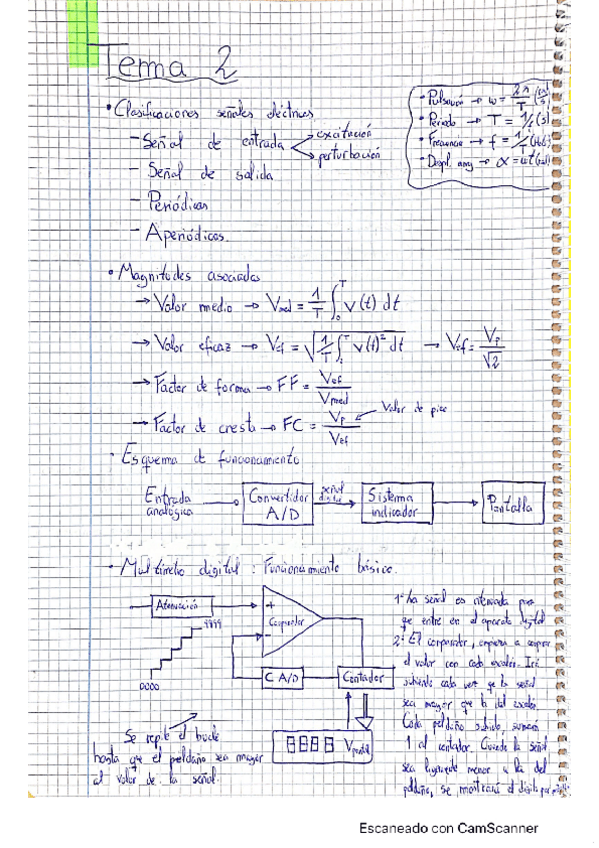 Tema 2
• Clasificaciones señales eléctricas
- Señal de entrada → excitación
→ perturbación
- Señal de salida
- Periódicas
- Aperiódicas.
• Pulsación → ω = 2π/T (rad/s)
• Periodo → T = 1/f (s)
• Frecuencia → f = 1/T (Hz)
• Despl. ang → α = ωt (rad)
• Magnitudes asociadas
→ Valor medio → Vmed = 1/T ∫₀ᵀ v(t) dt
→ Valor eficaz → Vef = √(1/T ∫₀ᵀ v(t)² dt) → Vef = Vp/√2
→ Factor de forma → FF = Vef/Vmed
→ Factor de cresta → FC = Vp/Vef ← Valor de pico
· Esquema de funcionamiento
Entrada analógica → Convertidor A/D → señal digital → Sistema indicador → Pantalla
· Multímetro digital: Funcionamiento básico.
Atenuación
+
Comparador
-
9999
0000
C A/D
Contador
8888 Vpantalla
Se repite el bucle
hasta que el peldaño sea mayor
al valor de la señal.
1º La señal es atenuada para
que entre en el aparato digital
2º El comparador, empieza a comparar
el valor con cada escalón. Irá
subiendo cada vez que la señal
sea mayor que la del escalón.
Cada peldaño subido, sumará
1 al contador. Cuando la señal
sea menor a la del
peldaño, se mostrará el dígito por
Escaneado con CamScanner